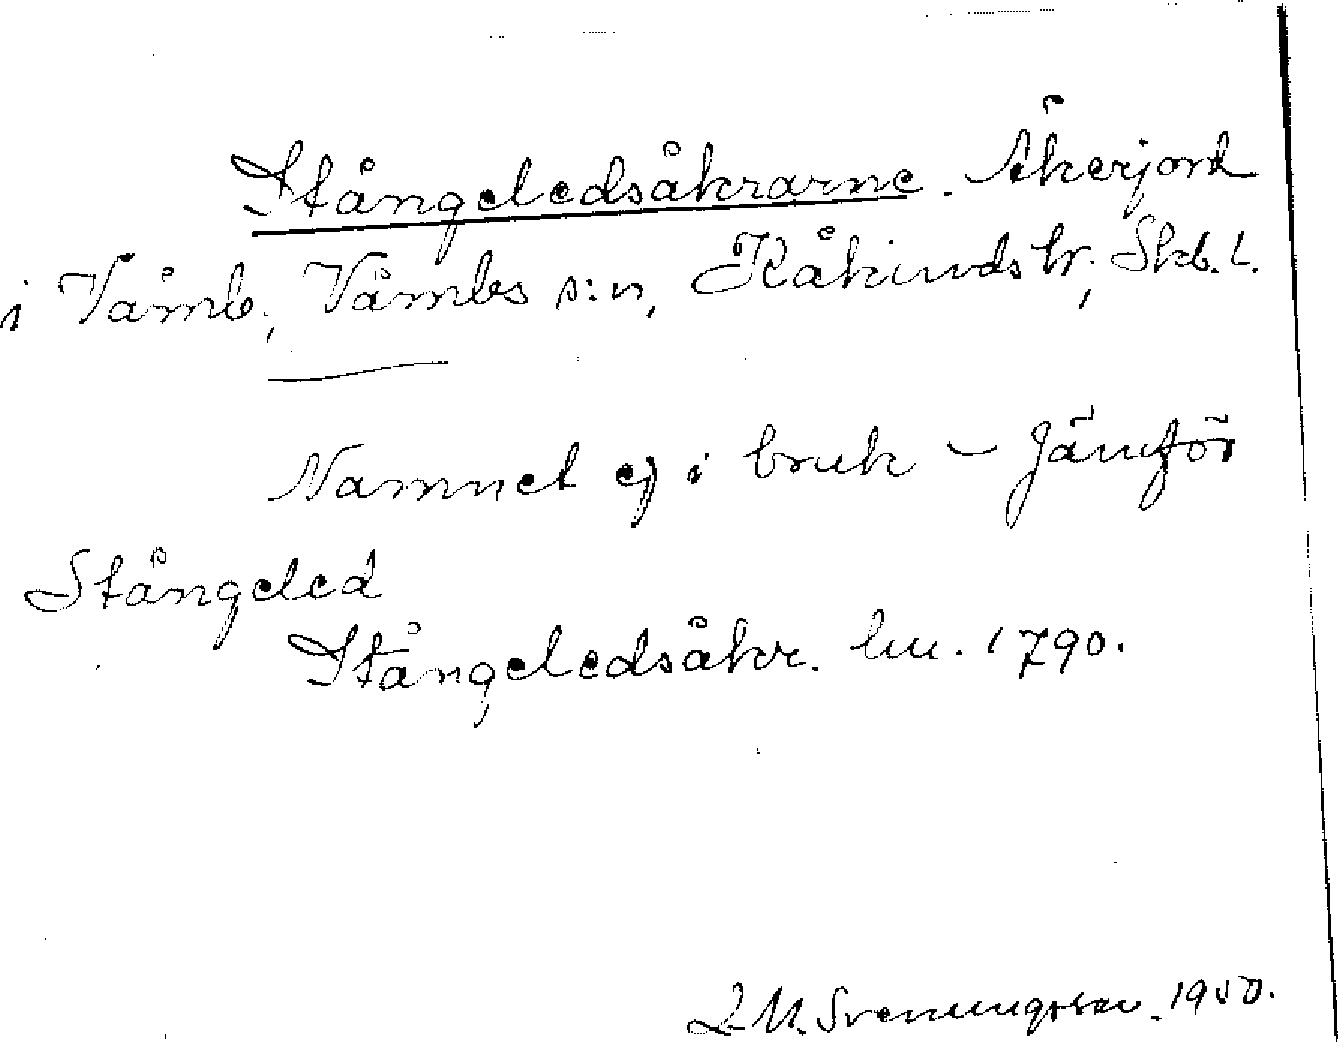 Stångeledsåkrarne. Åkerjord
i Våmb, Våmbs s:n, Kåkinds hr, Skb. l.
Namnet ej i bruk – Jämför
Stångeled
Stångeledsåkr. lm. 1790.
L. M. Svenungsson. 1950.